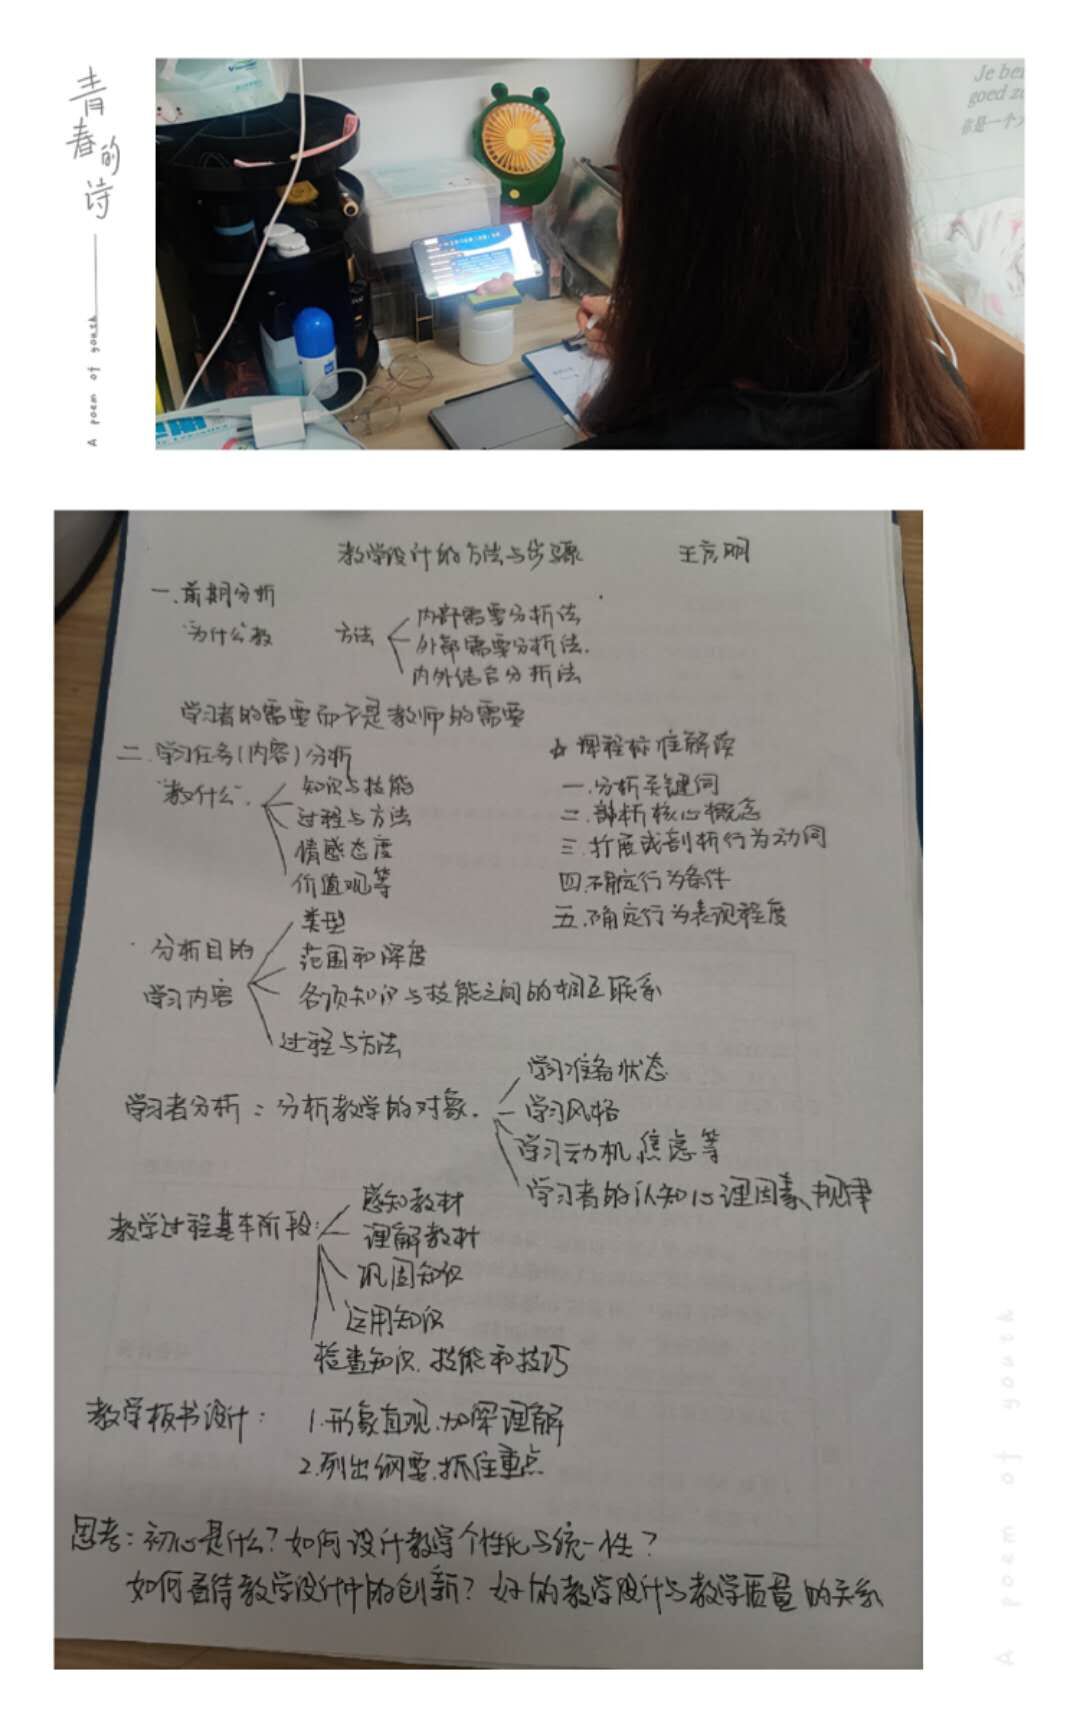 青春的诗
A poem of youth
Je ben
goed zo
你是一个
教学设计的方法与步骤 王彦明
一.前期分析
"为什么"教 方法
内部需要分析法
外部需要分析法.
内外结合分析法
学习者的需要而不是教师的需要
二.学习任务(内容)分析
"教什么".
知识与技能
过程与方法
情感态度
价值观等
☆课程标准解读
一.分析关键词
二.剖析核心概念
三.扩展或剖析行为动词
四.确定行为条件
五.确定行为表现程度
分析目的
学习内容
类型
范围和深度
各项知识与技能之间的相互联系
过程与方法
学习者分析:分析教学的对象.
学习准备状态
学习风格
学习动机、焦虑等
学习者的认知心理因素、规律
教学过程基本阶段:
感知教材
理解教材
巩固知识
运用知识
检查知识、技能和技巧
教学板书设计:
1.形象直观、加深理解
2.列出纲要、抓住重点
思考:初心是什么?如何设计教学个性化与统一性?
如何看待教学设计中的创新?好的教学设计与教学质量的关系
A poem of youth